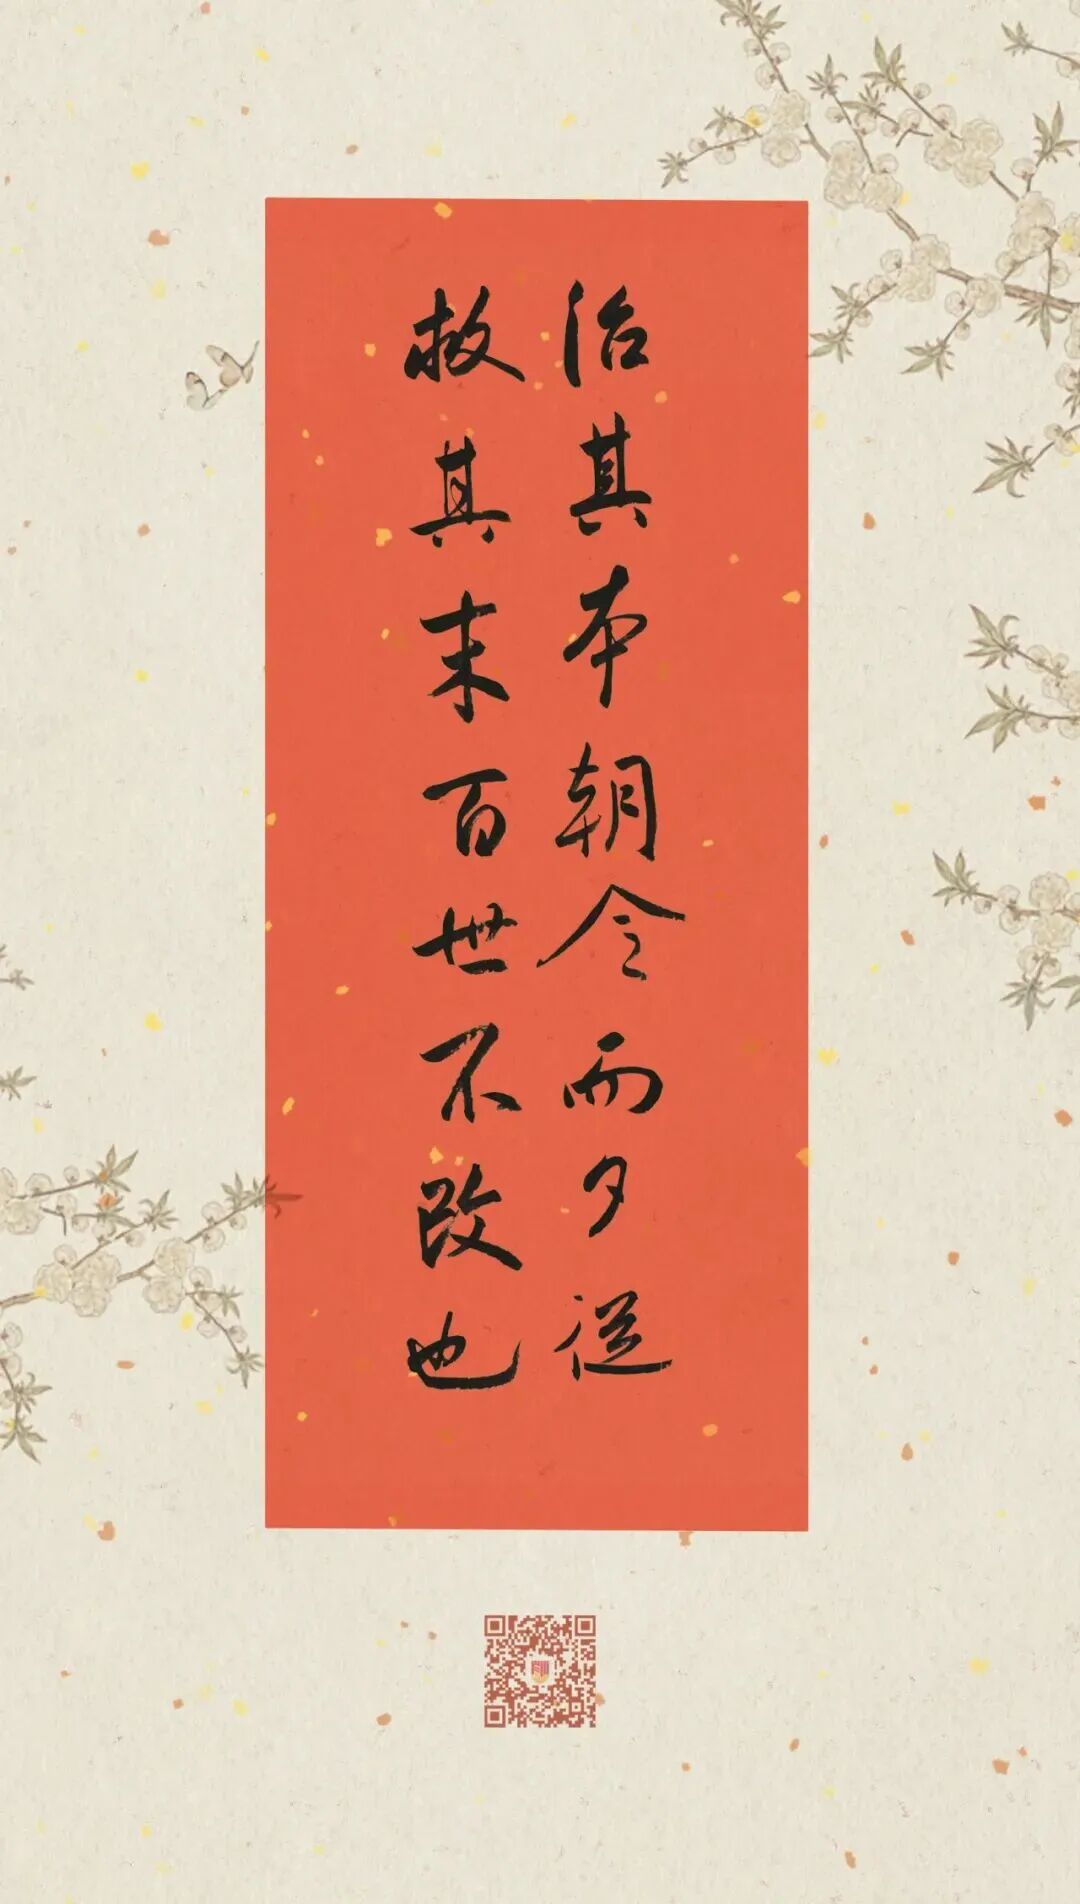 治其本朝令而夕從
救其末百世不改也